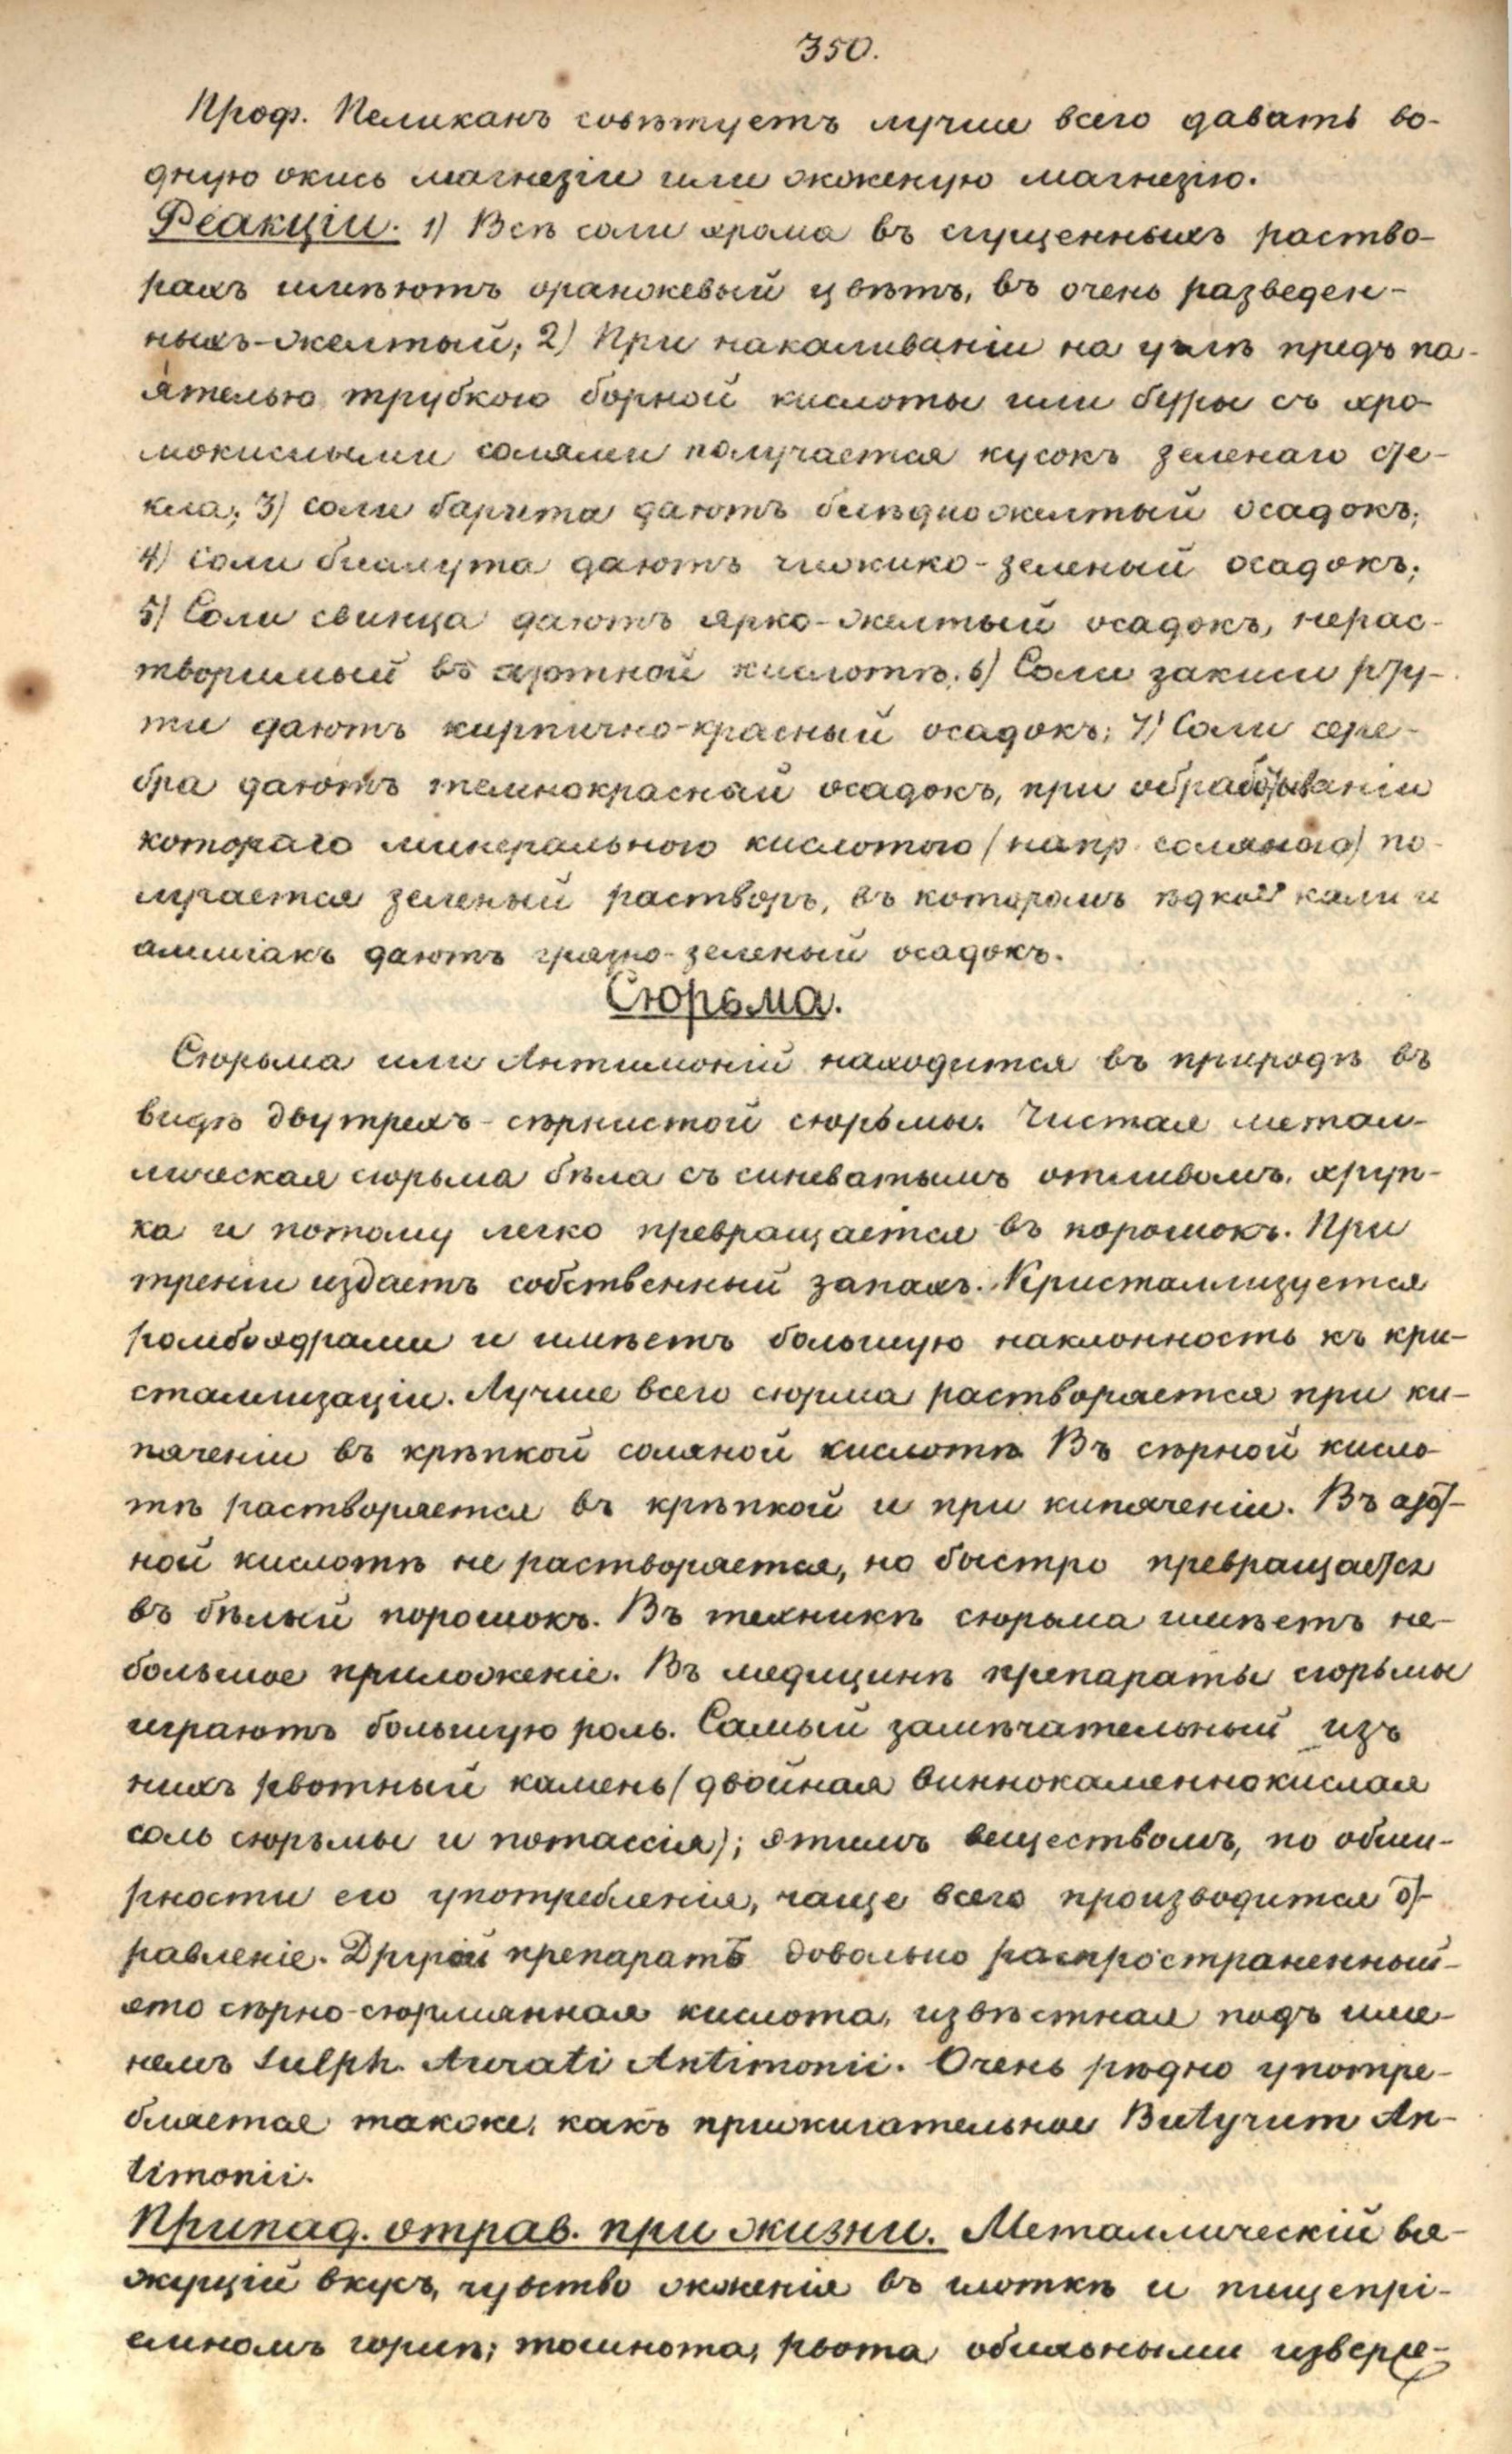 350.
Проф. Пеликанъ совѣтуетъ лучше всего давать во-
дную окись магнезіи или жженую магнезію.
Реакціи. 1) Всѣ соли хрома въ сгущенныхъ раство-
рахъ имѣютъ оранжевый цвѣтъ, въ очень разведен-
ныхъ-желтый; 2) При накаливаніи на углѣ предъ па-
ятелью трубкою борной кислоты или буры съ хро-
мокислыми солями получается кусокъ зеленаго сте-
кла; 3) соли барита даютъ блѣдножелтый осадокъ;
4) соли висмута даютъ чижико-зеленый осадокъ;
5) Соли свинца даютъ ярко-желтый осадокъ, нерас-
творимый въ азотной кислотѣ; 6) Соли закиси рту-
ти даютъ кирпично-красный осадокъ; 7) Соли сере-
бра даютъ темнокрасный осадокъ, при обработываніи
котораго минеральною кислотою (напр. соляною) по-
лучается зеленый растворъ, въ которомъ ѣдкой кали и
амміакъ даютъ грязно-зеленый осадокъ.
Сюрьма.
Сюрьма или Антимоній находится въ природѣ въ
видѣ двутрехъ-сѣрнистой сюрьмы. Чистая метал-
лическая сюрьма бѣла съ синеватымъ отливомъ, хруп-
ка и потому легко превращается въ порошокъ. При
треніи издаетъ собственный запахъ. Кристаллизуется
ромбоядрами и имѣетъ большую наклонность къ кри-
сталлизаціи. Лучше всего сюрма растворяется при ки-
пяченіи въ крѣпкой соляной кислотѣ. Въ сѣрной кисло-
тѣ растворяется въ крѣпкой и при кипяченіи. Въ азот-
ной кислотѣ не растворяется, но быстро превращается
въ бѣлый порошокъ. Въ техникѣ сюрьма имѣетъ не-
большое приложеніе. Въ медицинѣ препараты сюрьмы
играютъ большую роль. Самый замѣчательный изъ
нихъ рвотный камень (двойная виннокаменнокислая
соль сюрьмы и потассія); этимъ веществомъ, по обши-
рности его употребленія, чаще всего производится от-
равленіе. Другой препаратъ довольно распространенный-
это сѣрно-сюрмянная кислота, извѣстная подъ име-
немъ Sulph. Aurati Antimonii. Очень рѣдко употре-
бляется также, какъ прижигательное Butyrum An-
timonii.
Припад. отрав. при жизни. Металлическій вя-
жущій вкусъ, чувство жженія въ глоткѣ и пищепрі-
емномъ горлѣ; тошнота, рвота обильными изверже-